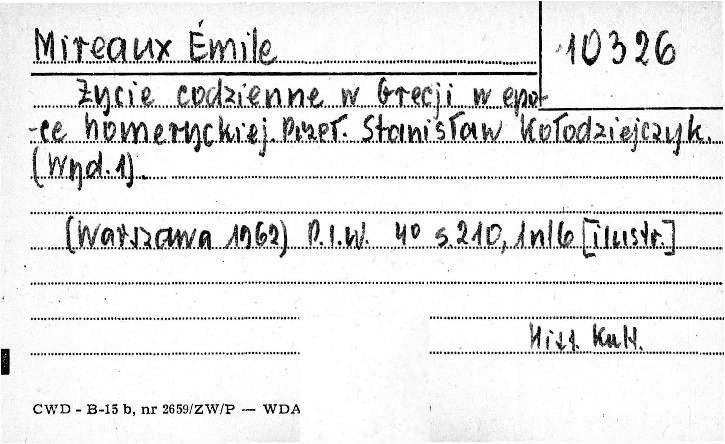 Mireaux Émile
10326
Życie codzienne w Grecji w epo-
-ce homeryckiej. Przeł. Stanisław Kołodziejczyk.
(Wyd. 1).
(Warszawa 1962) P.I.W. 4° s. 210, 1nl6 [ilustr.]
Hist. Kult.
CWD - B-15 b, nr 2659/ZW/P — WDA